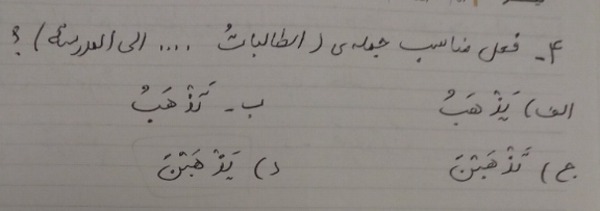 ۴- فعل مناسب جمله ی (الطالباتُ .... الی المدرسة) ؟
الف) یَذْهَبُ ب- تَذْهَبُ
ج) تَذْهَبْنَ د) یَذْهَبْنَ